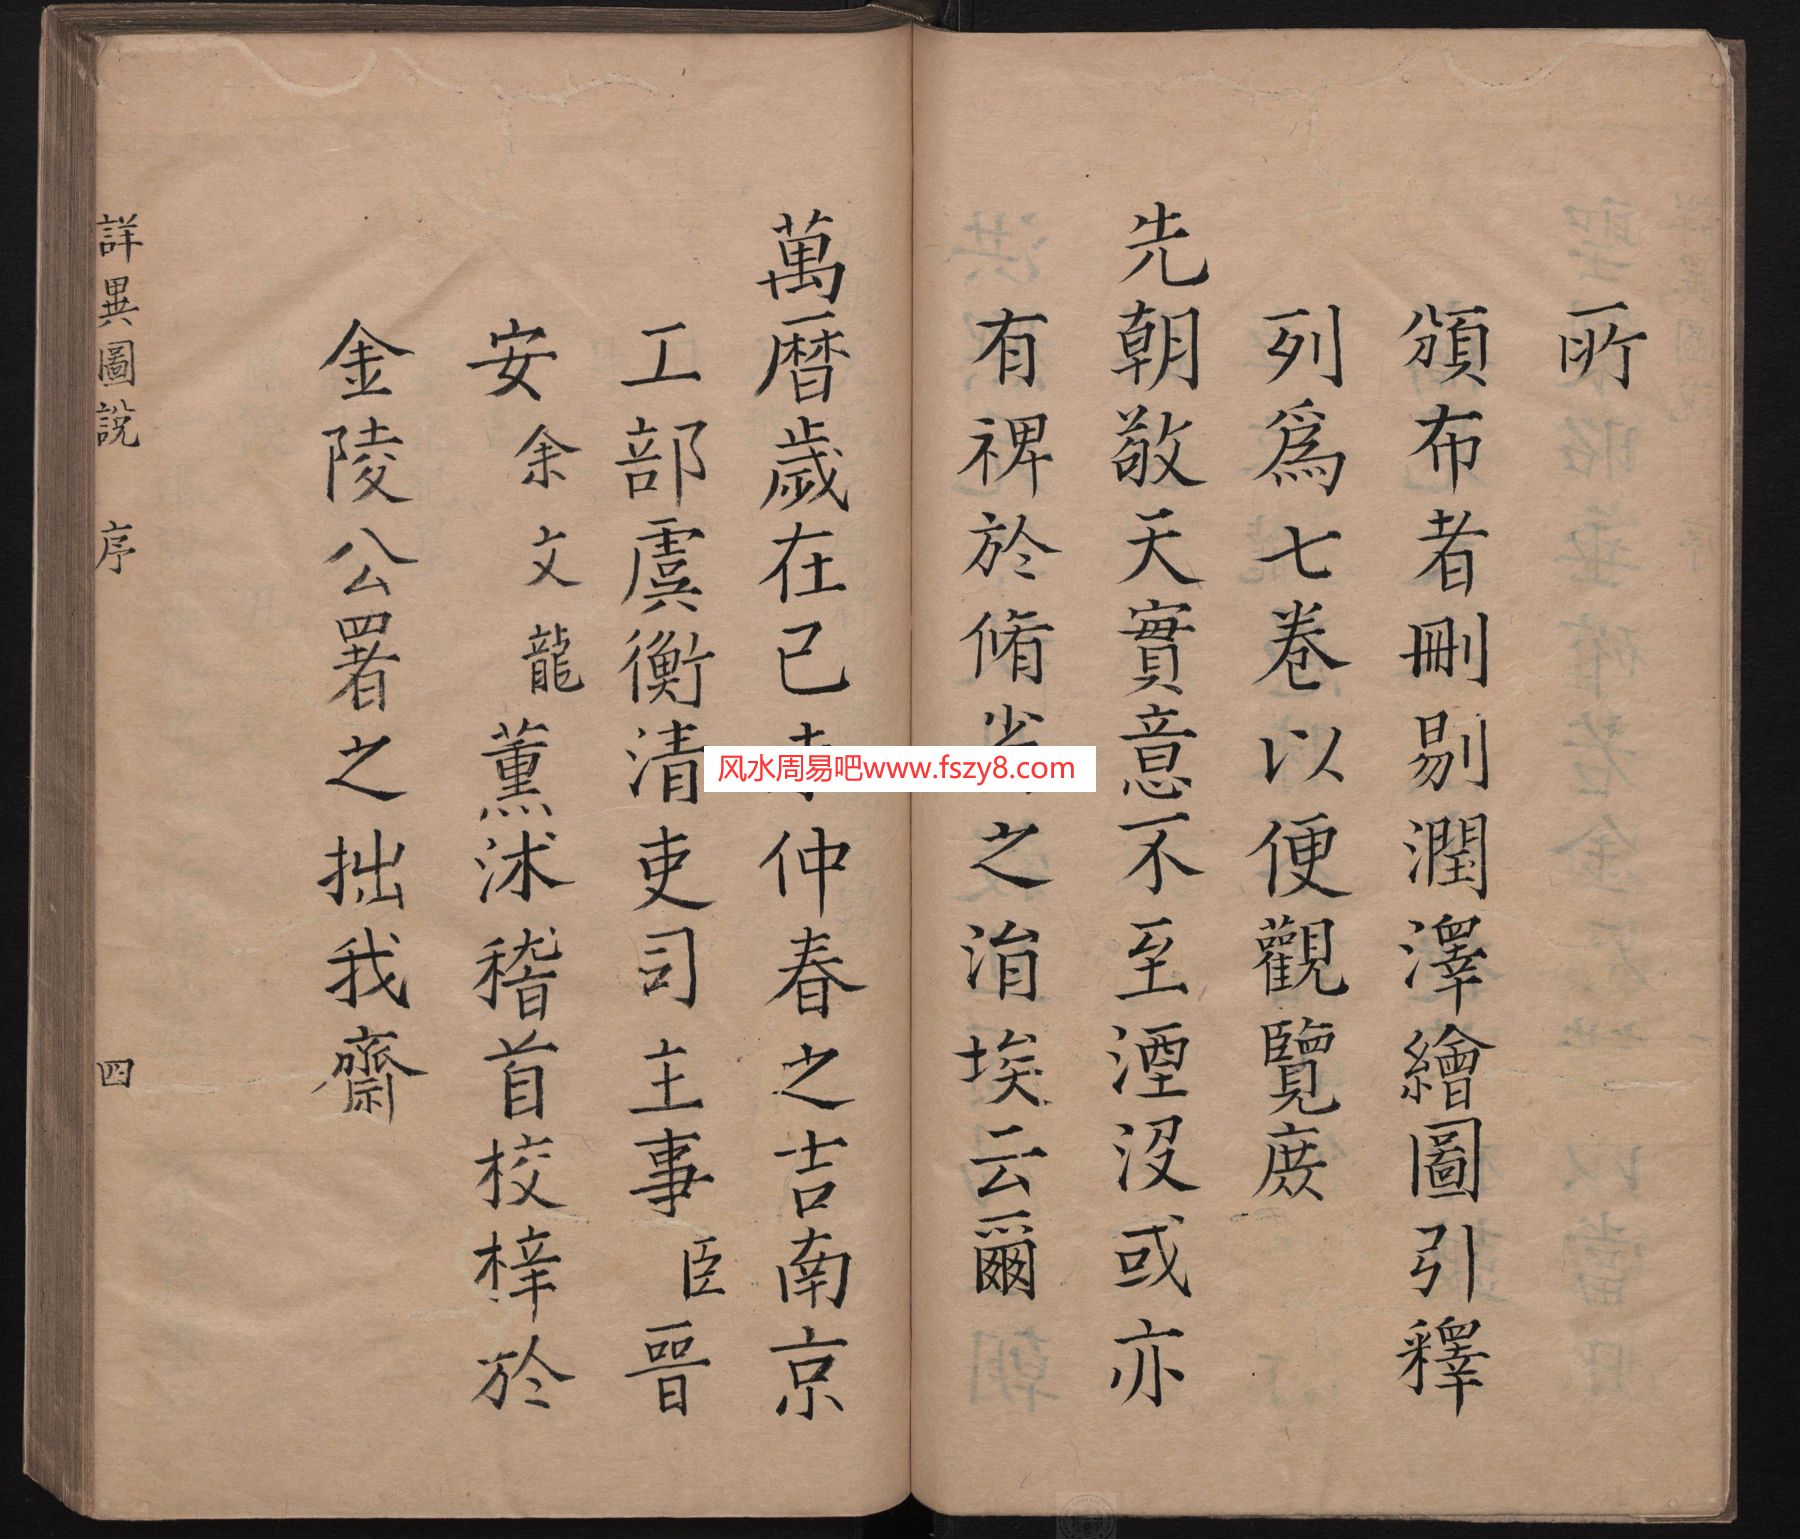 所
頒布者刪剔潤澤繪圖引釋
列爲七卷以便觀覽庻
先朝敬天實意不至湮沒或亦
有裨於脩省之涓埃云爾
萬曆歲在己未仲春之吉南京
工部虞衡清吏司主事臣晉
安余文龍薰沭稽首校梓於
金陵公署之拙我齋
詳異圖說 序 四
风水周易吧www.fszy8.com